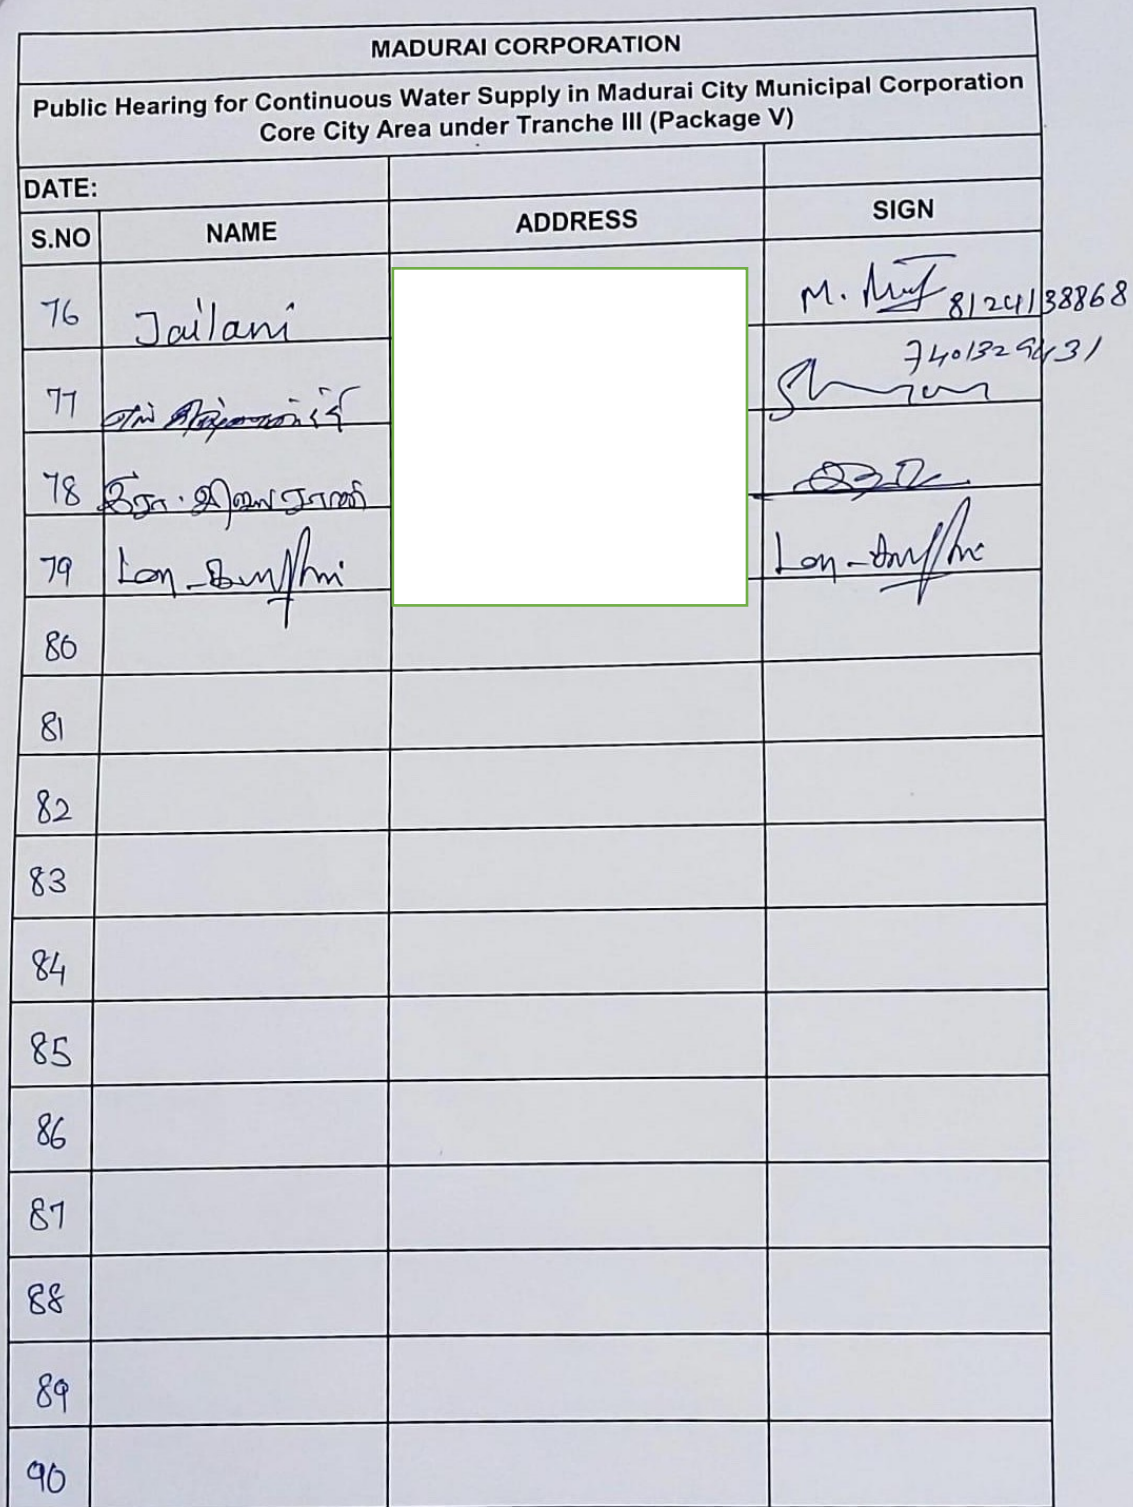 MADURAI CORPORATION
Public Hearing for Continuous Water Supply in Madurai City Municipal Corporation
Core City Area under Tranche III (Package V)
DATE:
S.NO NAME ADDRESS SIGN
76 Jailani M. 8124138868
77 7401329431
78
79
80
81
82
83
84
85
86
87
88
89
90